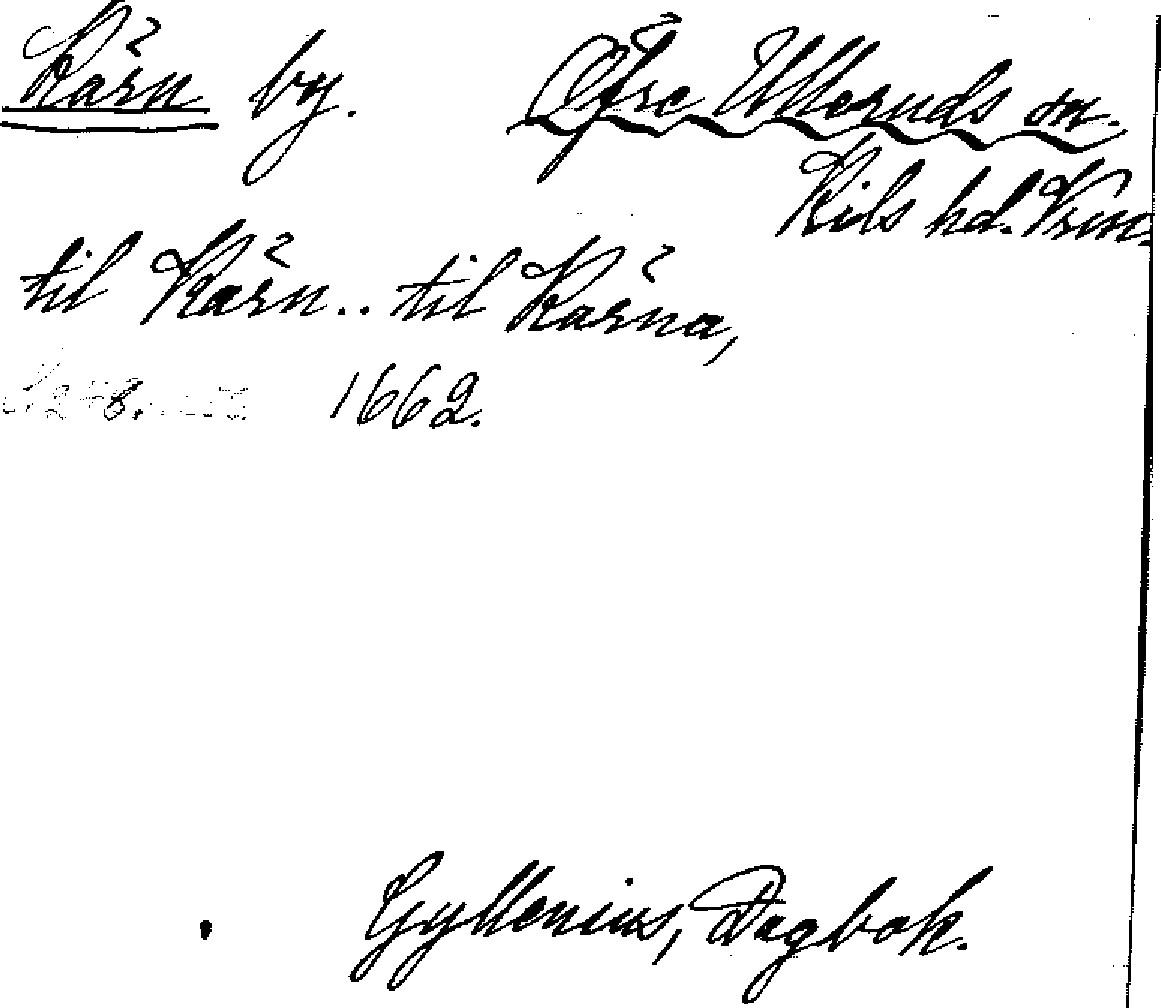 Kärn by. Öfre Ulleruds sn.
Kils hd. Vrm.
til Kärn.. til Kärna,
1662.
Gyllenius, Dagbok.